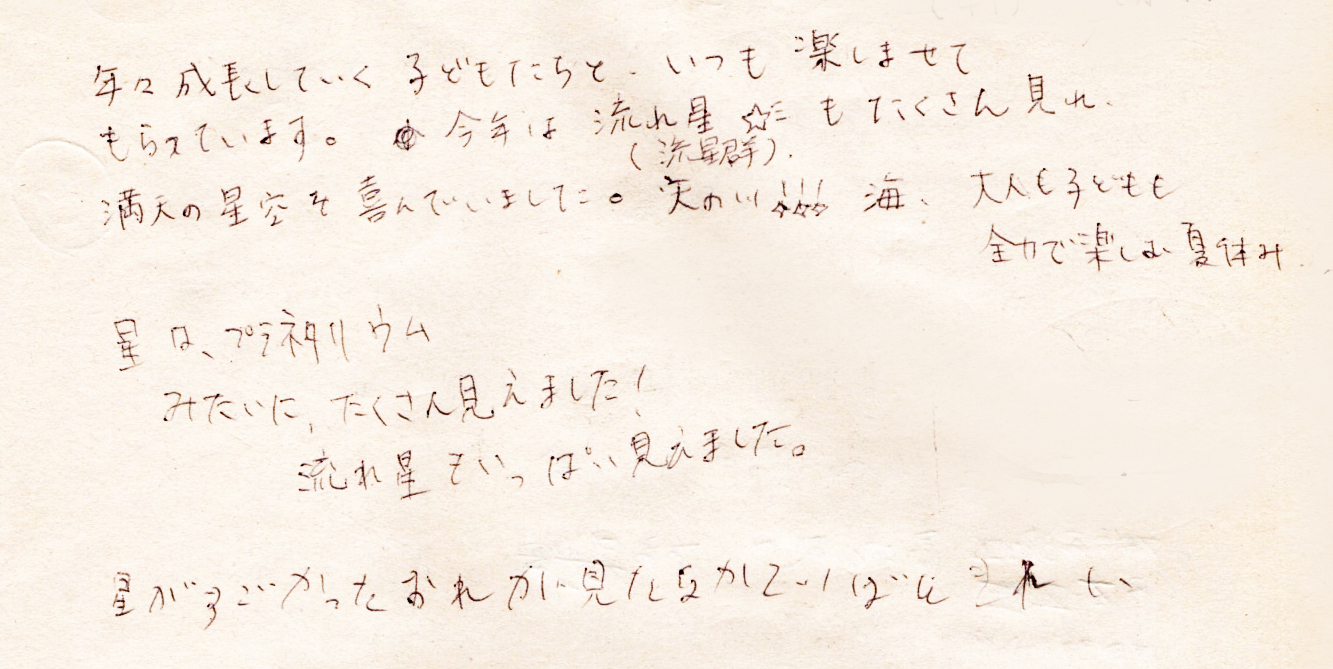 年々成長していく子どもたちと、いつも楽しませて
もらっています。 今年は流れ星☆もたくさん見れ、
(流星群).
満天の星空を喜んでいました。天の川 海、大人も子どもも
全力で楽しむ夏休み.
星は、プラネタリウム
みたいに、たくさん見えました!
流れ星もいっぱい見えました。
星がすごかったおれがに見たなかでいばんきれい